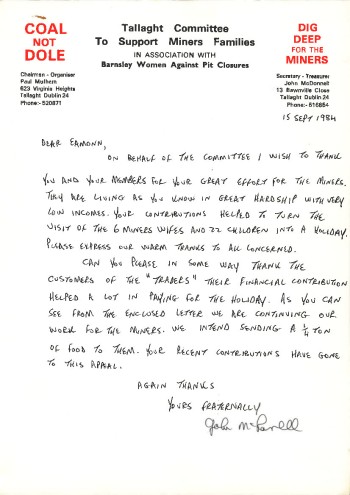 COAL
NOT
DOLE
Tallaght Committee
To Support Miners Families
IN ASSOCIATION WITH
Barnsley Women Against Pit Closures
DIG
DEEP
FOR THE
MINERS
Chairman - Organiser
Paul Mulhern
623 Virginia Heights
Tallaght Dublin 24
Phone:- 520871
Secretary - Treasurer
John McDonnell
13 Bawnville Close
Tallaght Dublin 24
Phone:- 516854
15 SEPT 1984
DEAR EAMONN,
ON BEHALF OF THE COMMITTEE I WISH TO THANK
YOU AND YOUR MEMBERS FOR YOUR GREAT EFFORT FOR THE MINERS.
THEY ARE LIVING AS YOU KNOW IN GREAT HARDSHIP WITH VERY
LOW INCOMES. YOUR CONTRIBUTIONS HELPED TO TURN THE
VISIT OF THE 6 MINERS WIFES AND 22 CHILDREN INTO A HOLIDAY.
PLEASE EXPRESS OUR WARM THANKS TO ALL CONCERNED.
CAN YOU PLEASE IN SOME WAY THANK THE
CUSTOMERS OF THE "TRADERS" THEIR FINANCIAL CONTRIBUTION
HELPED A LOT IN PAYING FOR THE HOLIDAY. AS YOU CAN
SEE FROM THE ENCLOSED LETTER WE ARE CONTINUING OUR
WORK FOR THE MINERS. WE INTEND SENDING A ¼ TON
OF FOOD TO THEM. YOUR RECENT CONTRIBUTIONS HAVE GONE
TO THIS APPEAL.
AGAIN THANKS
YOURS FRATERNALLY
John